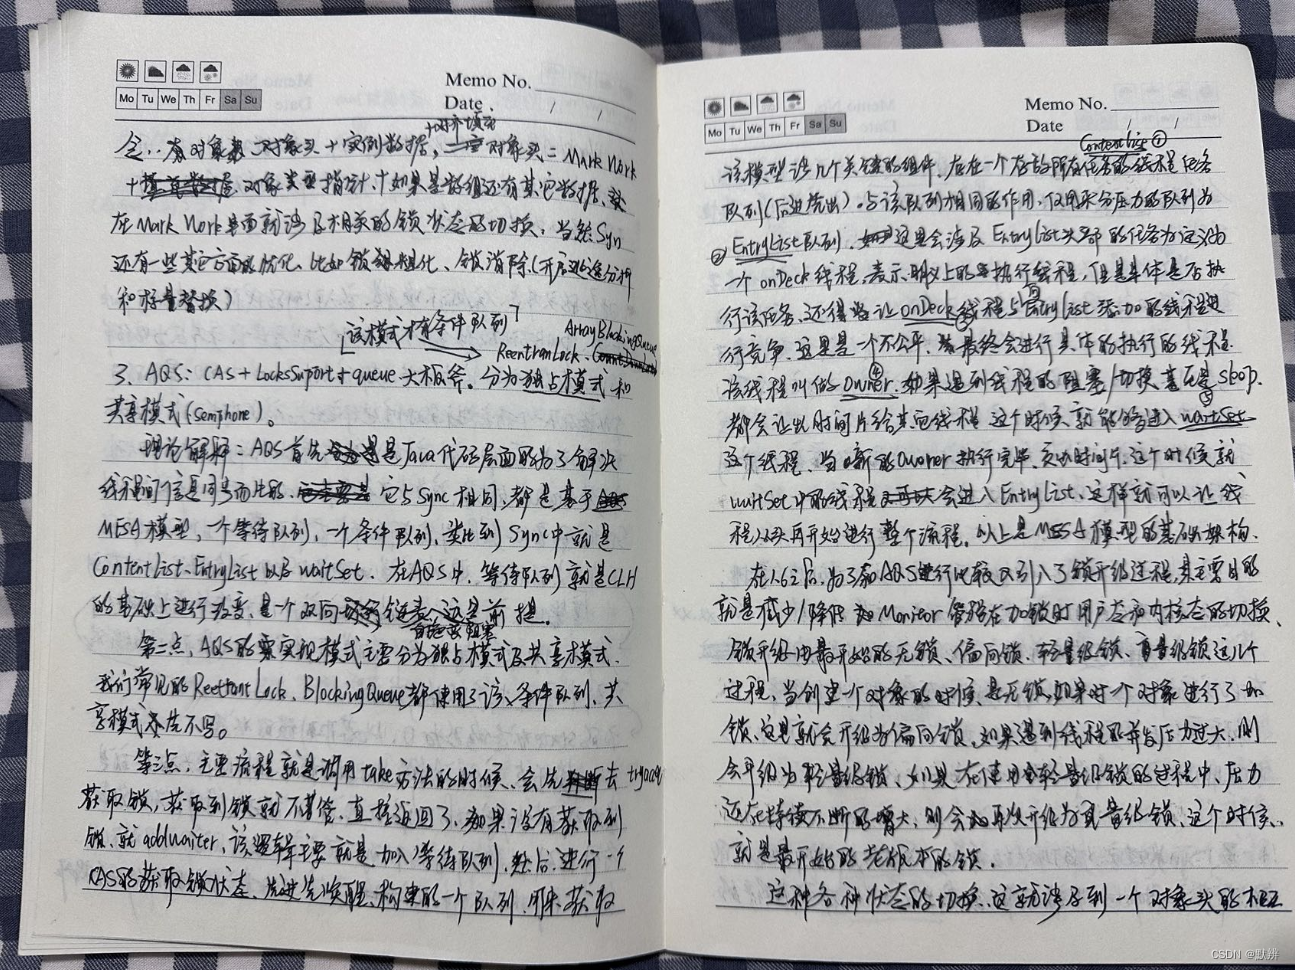 Memo No.
Mo Tu We Th Fr Sa Su
Date / /
+对齐填充
念..java对象头 对象头+实例数据，对象头=Mark Work
+对象类型指针，+如果是数组还有其它数据，
在Mark Work里面就涉及相关的锁状态的切换，当然Syn
还有一些其它方面的优化，比如锁粗化、锁消除(开启逃逸分析
和标量替换)
该模式才有条件队列 ArrayBlockingQueue
ReentranLock、
3、AQS：CAS+LocksSuport+queue大板斧。分为独占模式和
共享模式(Semphone)。
理论解释：AQS首先是是Java代码层面服为了解决
线程间信息同步而出的，它与Sync相同，都是基于
MESA模型，一个等待队列，一个条件队列，类比到Sync中就是
ContentList、EntryList以及waitSet。在AQS中，等待队列就是CLH
的基础上进行改变，是一个双向链表，这是前提。
第二点，AQS的实现模式主要分为独占模式及共享模式，
我们常见的ReetrantLock、BlockingQueue都使用了该、条件队列，共
享模式本片不写。
第三点，主要流程就是调用take方法的时候，会先去tryacq
获取锁，获取到锁就不管，直接返回了，如果没有获取到
锁，就addwaiter，该逻辑主要就是加入等待队列，然后进行一个
CAS的获取锁状态，先进先唤醒，构建的一个队列，用来获取
Memo No.
Mo Tu We Th Fr Sa Su
Date / /
ContentList①
该模型涉几个关键的组件，存在一个存放所有任务的线程任务
队列(后进先出)。与该队列相同的作用，仅用来分压力的队列为
②EntryList队列，这里会涉及EntryList头部的任务为定义为
一个onDeck线程，表示名义上的执行线程，但是具体是否执
行该任务，还得当让onDeck线程与EntryList添加的线程进
③
行竞争，这里是一个不公平，最终会进行具体的执行的线程
该线程叫做Owner，如果遇到线程的阻塞/切换，甚至是stop，
④
都会让出时间片给其它线程，这个时候就能够进入waitSet
⑤
这个线程，当新的Owner执行完毕，交出时间片，这个时候就
waitSet中的线程会进入EntryList，这样就可以让线
程从头再开始进行整个流程。以上是MESA模型的基础架构。
在1.6之后，为了和AQS进行比较又引入了锁升级过程，其主要目的
就是减少/降低Monitor管程在加锁时用户态和内核态的切换，
锁升级由最开始的无锁、偏向锁、轻量级锁、重量级锁这几个
过程，当创建一个对象的时候，是无锁，如果对一个对象进行了加
锁，这里就会升级为偏向锁，如果遇到线程的并发压力过大，则
会升级为轻量级锁，如果在使用轻量级锁的过程中，压力
还在持续不断的增大，则会再次升级为重量级锁，这个时候、
就是最开始的老版本的锁。
这种各种状态的切换，这就涉及到一个对象头的概
CSDN @默辨